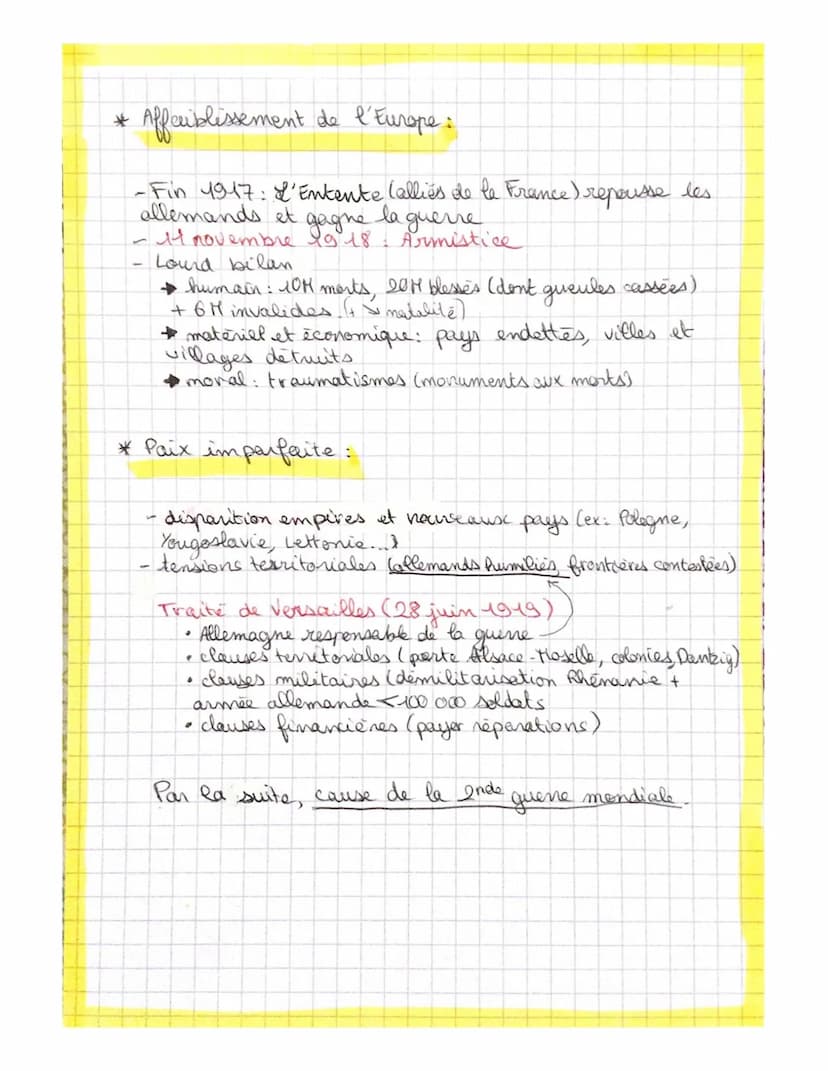 * Affaiblissement de l'Europe :
- Fin 1917 : L'Entente (alliés de la France) repousse les
allemands et gagne la guerre
- 11 novembre 1918 : Armistice
- Lourd bilan
→ humain : 10M morts, 20M blessés (dont gueules cassées)
+ 6M invalides. (+ ↘ natalité)
→ matériel et économique : pays endettés, villes et
villages détruits
→ moral : traumatismes (monuments aux morts)
* Paix imparfaite :
- disparition empires et nouveaux pays (ex : Pologne,
Yougoslavie, Lettonie...)
- tensions territoriales (allemands humiliés, frontières contestées)
Traité de Versailles (28 juin 1919)
• Allemagne responsable de la guerre
• clauses territoriales (perte Alsace-Moselle, colonies, Dantzig)
• clauses militaires (démilitarisation Rhénanie +
armée allemande < 100 000 soldats
• clauses financières (payer réparations)
Par la suite, cause de la 2nde guerre mondiale.